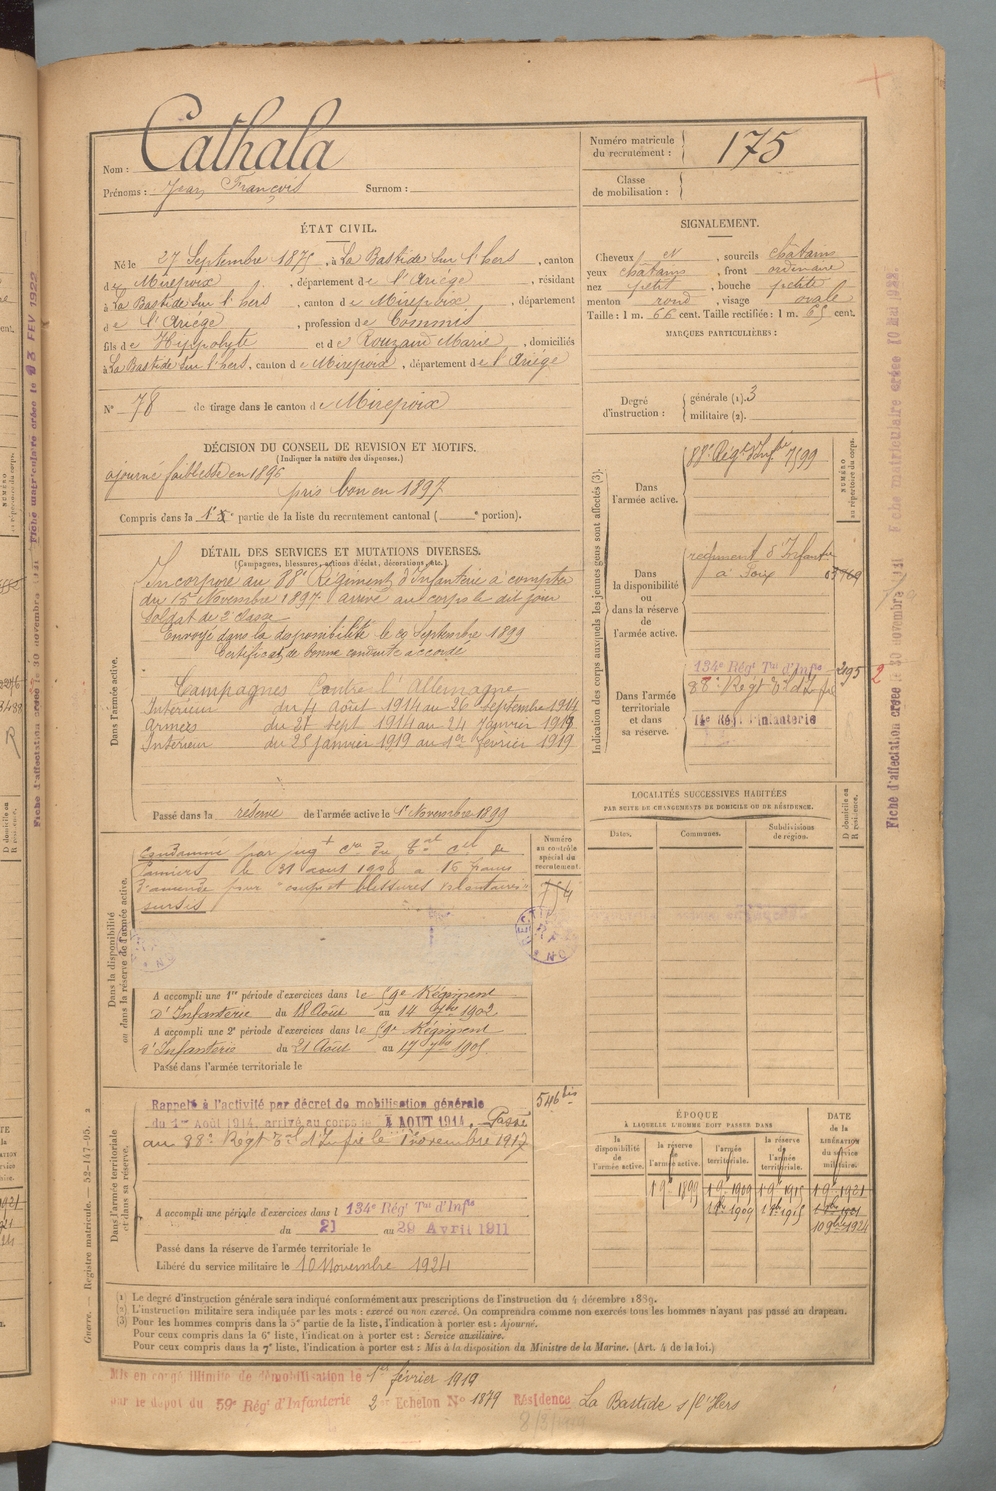 Nom : Cathala
Prénoms : Jean François Surnom :
Numéro matricule du recrutement : 175
Classe de mobilisation :
ÉTAT CIVIL.
Né le 27 Septembre 1875, à La Bastide sur l'hers, canton
de Mirepoix, département de l'Ariége, résidant
à La Bastide sur l'hers, canton de Mirepoix, département
de l'Ariége, profession de Commis
fils de Hyppolyte et de Rouzaud Marie, domiciliés
à La Bastide sur l'hers, canton de Mirepoix, département de l'Ariége
N° 78 de tirage dans le canton de Mirepoix
SIGNALEMENT.
Cheveux et, sourcils châtains
yeux châtains, front ordinaire
nez petit, bouche petite
menton rond, visage ovale
Taille : 1 m. 66 cent. Taille rectifiée : 1 m. 65 cent.
MARQUES PARTICULIÈRES :
Degré d'instruction : générale (1). 3
militaire (2).
DÉCISION DU CONSEIL DE REVISION ET MOTIFS.
(Indiquer la nature des dispenses.)
ajourné faiblesse en 1896
pris bon en 1897
Compris dans la 1e partie de la liste du recrutement cantonal ( e portion).
DÉTAIL DES SERVICES ET MUTATIONS DIVERSES.
(Campagnes, blessures, actions d'éclat, décorations, etc.)
Dans l'armée active.
Incorporé au 88e Régiment d'Infanterie à compter
du 15 Novembre 1897 arrivé au corps le dit jour
soldat de 2e classe
Envoyé dans la disponibilité le 20 Septembre 1899
Certificat de bonne conduite accordé
Campagnes Contre l'Allemagne
Intérieur du 4 Août 1914 au 26 Septembre 1914
Armées du 27 Sept 1914 au 24 Janvier 1919
Intérieur du 25 janvier 1919 au 1er février 1919
Passé dans la réserve de l'armée active le 1er Novembre 1899
Indication des corps auxquels les jeunes gens sont affectés (3).
NUMÉRO au répertoire du corps.
Dans l'armée active.
88e Régt d'Infie 7599
Dans la disponibilité ou dans la réserve de l'armée active.
régiment d'Infantie
à Foix
Dans l'armée territoriale et dans sa réserve.
134e Régt Tal d'Infie 2195
88e Regt Tal d'Infie
d'Infanterie
Dans la disponibilité ou dans la réserve de l'armée active.
Numéro au contrôle spécial du recrutement.
754
Condamné par jugt du de
Pamiers le 31 août 1908 à 16 francs
d'amende pour "coups et blessures volontaires"
sursis
A accompli une 1re période d'exercices dans le 59e Régiment
d'Infanterie du 18 Août au 14 7bre 1902
A accompli une 2e période d'exercices dans le 59e Régiment
d'Infanterie du 21 Août au 17 7bre 1905
Passé dans l'armée territoriale le
LOCALITÉS SUCCESSIVES HABITÉES
PAR SUITE DE CHANGEMENTS DE DOMICILE OU DE RÉSIDENCE.
Dates. Communes. Subdivisions de région. D domicile ou R résidence.
Dans l'armée territoriale et dans sa réserve.
546 bis
Rappelé à l'activité par décret de mobilisation générale
du 1er Août 1914, arrivé au corps le 4 AOUT 1914. Passé
au 88e Régt Tal d'Infie le 1 novembre 1917
A accompli une période d'exercices dans l 134e Régt Tal d'Infie
du 21 au 29 Avril 1911
Passé dans la réserve de l'armée territoriale le
Libéré du service militaire le 10 Novembre 1924
ÉPOQUE
À LAQUELLE L'HOMME DOIT PASSER DANS
la disponibilité de l'armée active. la réserve de l'armée active. l'armée territoriale. la réserve de l'armée territoriale.
DATE de la LIBÉRATION du service militaire.
1 9bre 1899 1 9bre 1909 1 9bre 1915 1 9bre 1921
10 9bre 1924
(1) Le degré d'instruction générale sera indiqué conformément aux prescriptions de l'instruction du 4 décembre 1889.
(2) L'instruction militaire sera indiquée par les mots : exercé ou non exercé. On comprendra comme non exercés tous les hommes n'ayant pas passé au drapeau.
(3) Pour les hommes compris dans la 5e partie de la liste, l'indication à porter est : Ajourné.
Pour ceux compris dans la 6e liste, l'indication à porter est : Service auxiliaire.
Pour ceux compris dans la 7e liste, l'indication à porter est : Mis à la disposition du Ministre de la Marine. (Art. 4 de la loi.)
Mis en congé illimité de démobilisation le 1er février 1919
par le dépôt du 59e Régt d'Infanterie 2e Echelon N° 1879 Résidence La Bastide s/l'Hers
Guerre. — Registre matricule. — 52-147-95.
Fiche d'affectation créée le 30 novembre 1931 Fiche matriculaire créée 10 Mai 1922.
Fiche d'affectation créée le 30 novembre Fiche matriculaire créée le 23 FEV 1922